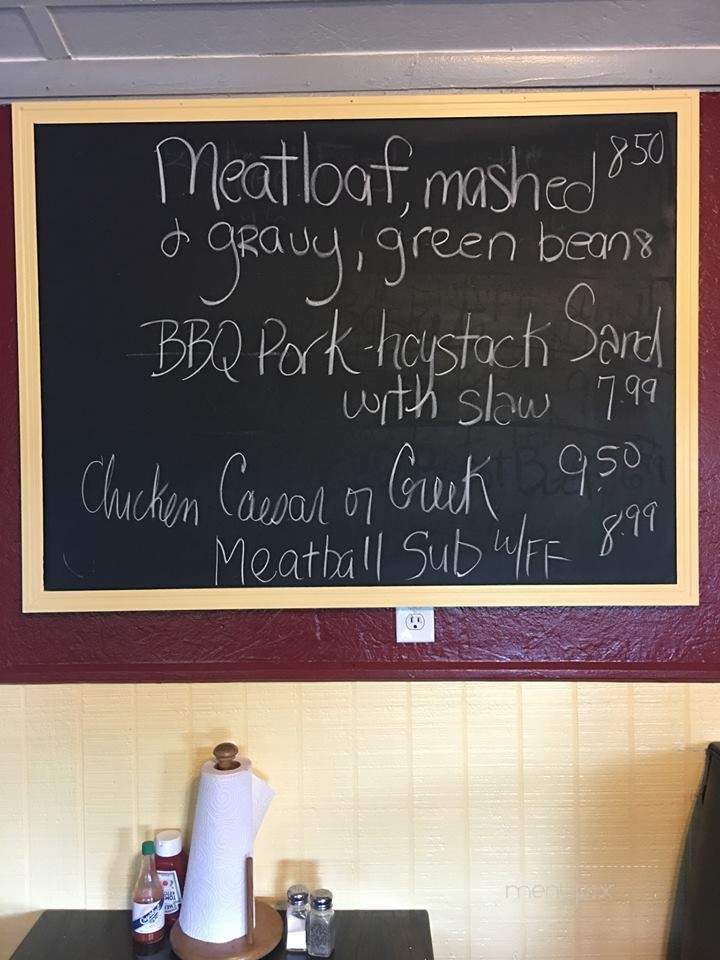 Meatloaf, mashed 8.50
& gravy, green beans
BBQ Pork-haystack Sand
with slaw 7.99
Chicken Caesar or Greek 9.50
Meatball Sub w/FF 8.99